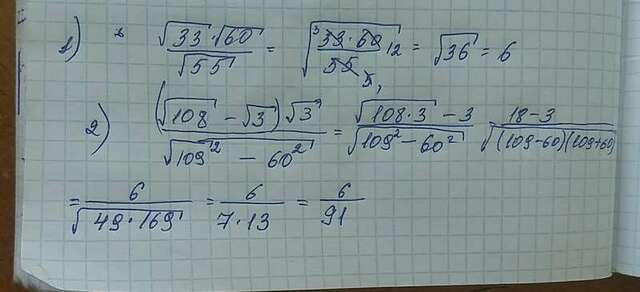 1) √33 · √60 / √55 = √(33 · 60 / 55) 3 12 5 = √36 = 6
2) (√108 − √3) √3 / √109² − 60² = √108 · 3 − 3 / √109² − 60² 18 − 3 / √(109−60)(109+60)
= 6 / √49 · 169 = 6 / 7 · 13 = 6 / 91